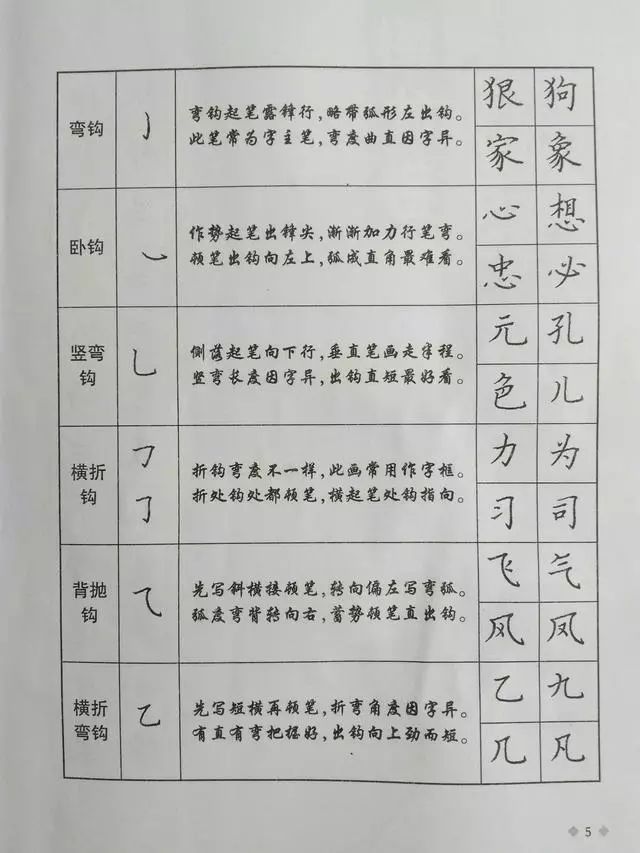 弯钩
㇁
弯钩起笔露锋行，略带弧形左出钩。
此笔常为字主笔，弯度曲直因字异。
狠 狗
家 象
卧钩
㇃
作势起笔出锋尖，渐渐加力行笔弯。
顿笔出钩向左上，弧成直角最难看。
心 想
忠 必
竖弯
钩
乚
侧落起笔向下行，垂直笔画走半程。
竖弯长度因字异，出钩直短最好看。
元 孔
色 儿
横折
钩
㇆
㇆
折钩弯度不一样，此画常用作字框。
折处钩处都顿笔，横起笔处钩指向。
力 为
习 司
背抛
钩
⺄
先写斜横接顿笔，转向偏左写弯弧。
弧度弯背转向右，蓄势顿笔直出钩。
飞 气
风 凤
横折
弯钩
乙
先写短横再顿笔，折弯角度因字异。
有直有弯把握好，出钩向上劲而短。
乙 九
几 凡
5